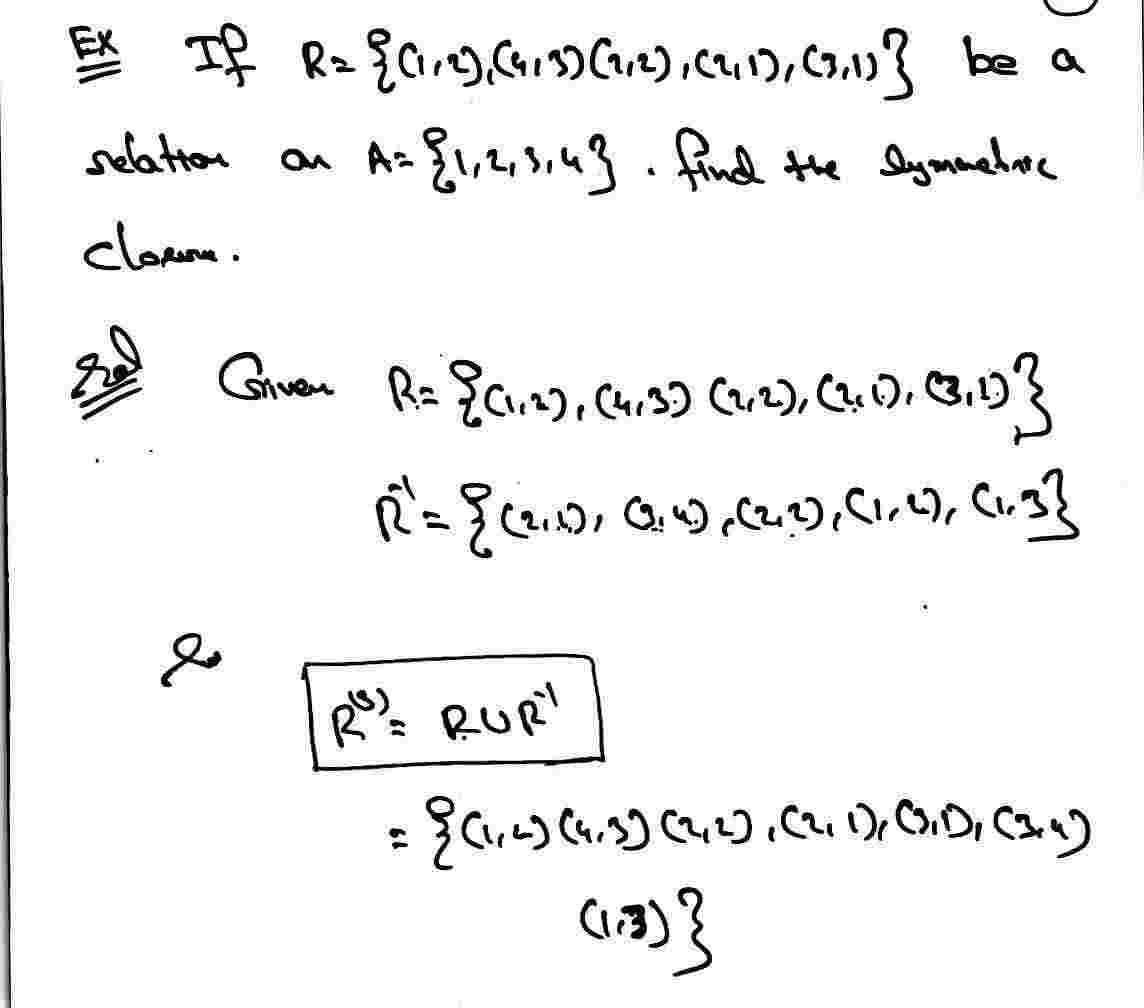 Ex If R = {(1,2),(4,3)(2,2),(2,1),(3,1)} be a
relation on A = {1,2,3,4}. find the Symmetric
Closure.
Sol Given R = {(1,2),(4,3)(2,2),(2,1),(3,1)}
R⁻¹ = {(2,1),(3,4),(2,2),(1,2),(1,3}
So
R⁽ˢ⁾ = R∪R⁻¹
= {(1,2)(4,3)(2,2),(2,1),(3,1),(3,4)
(1,3)}